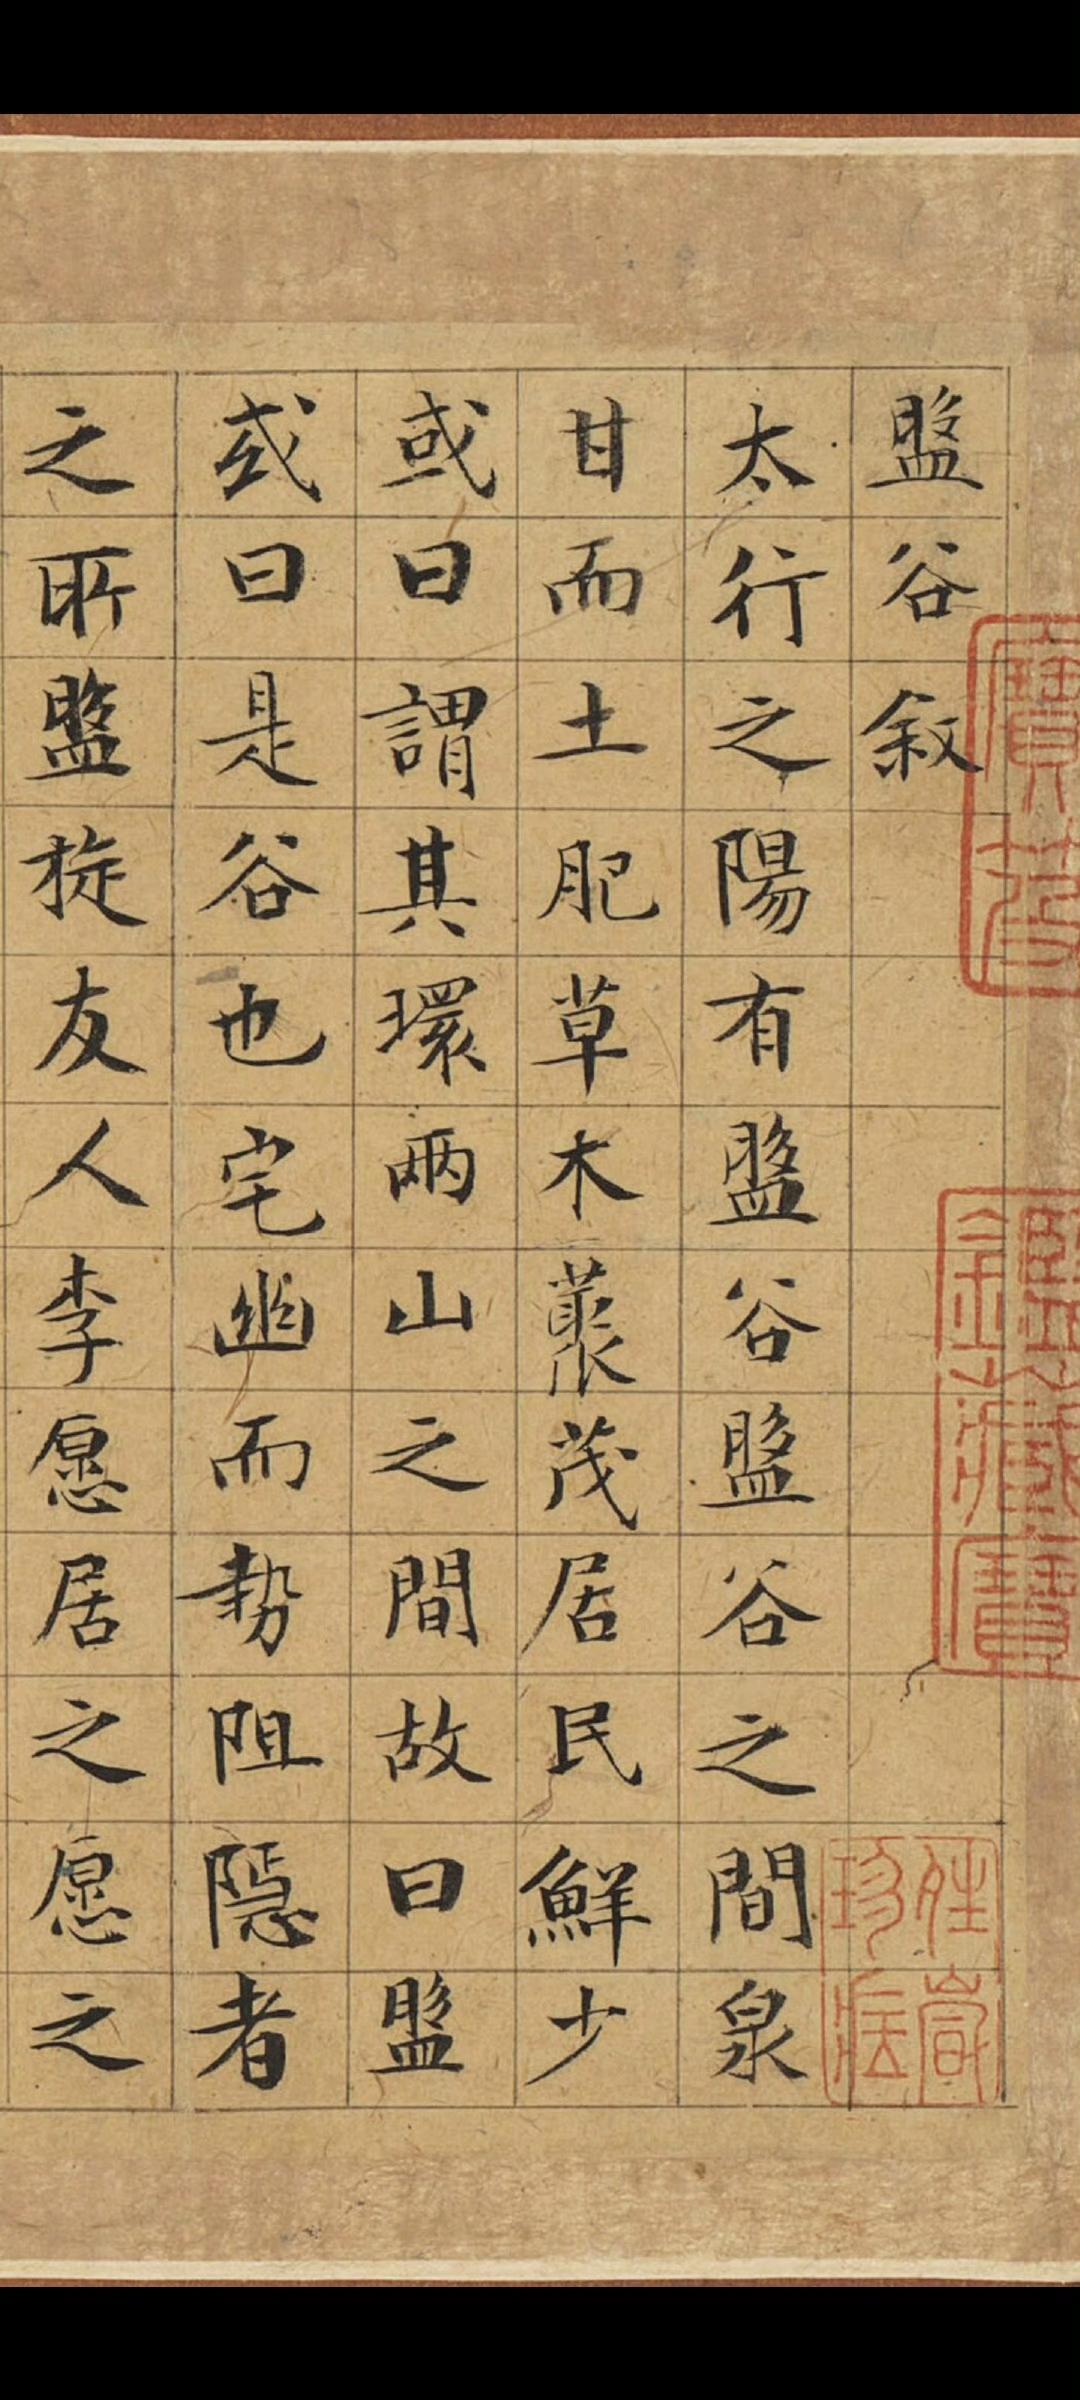 盤谷敘
太行之陽有盤谷盤谷之間泉
甘而土肥草木藂茂居民鮮少
或曰謂其環兩山之間故曰盤
或曰是谷也宅幽而勢阻隱者
之所盤旋友人李愿居之愿之